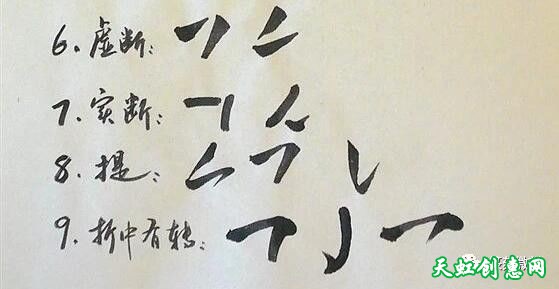 6.虚断:
7.实断:
8.提:
9.折中有转:
天虹创意网